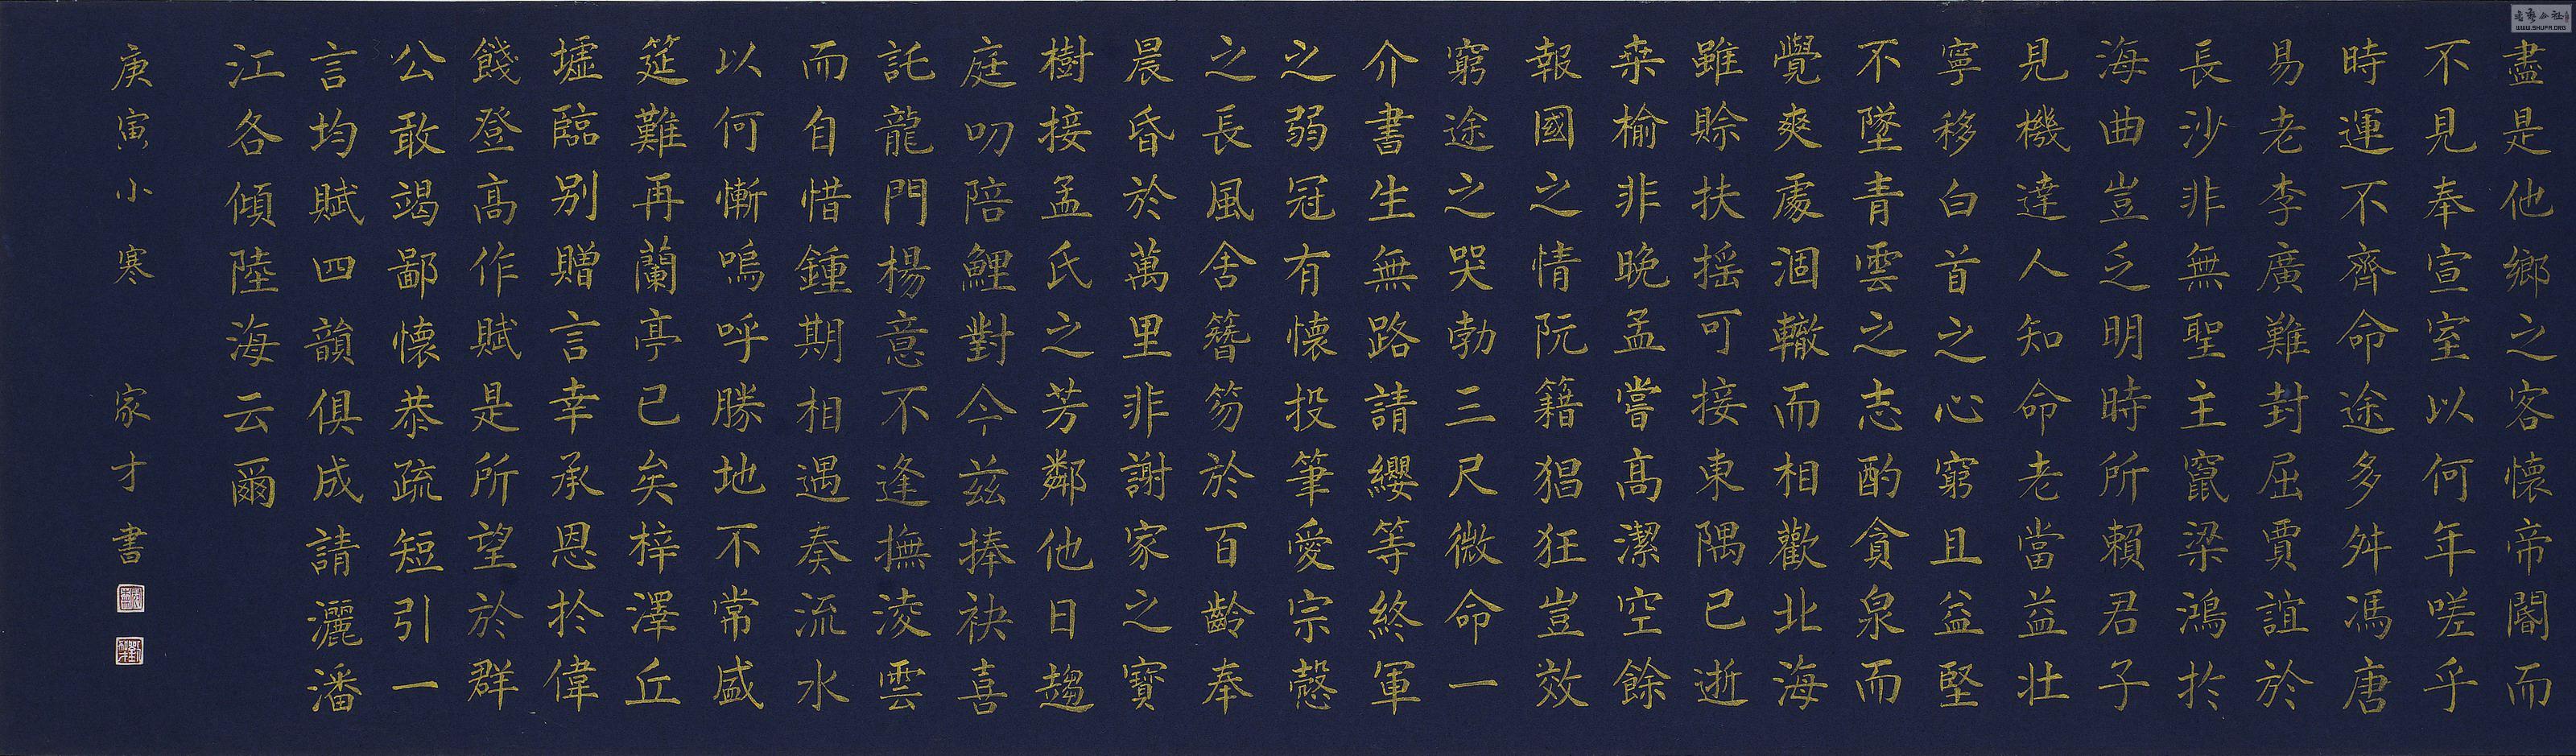 盡是他鄉之客懷帝閽而
不見奉宣室以何年嗟乎
時運不齊命途多舛馮唐
易老李廣難封屈賈誼於
長沙非無聖主竄梁鴻於
海曲豈乏明時所賴君子
見機達人知命老當益壯
寧移白首之心窮且益堅
不墜青雲之志酌貪泉而
覺爽處涸轍而相歡北海
雖賒扶搖可接東隅已逝
桒榆非晚孟嘗高潔空餘
報國之情阮籍猖狂豈效
窮途之哭勃三尺微命一
介書生無路請纓等終軍
之弱冠有懷投筆愛宗愨
之長風舍簪笏於百齡奉
晨昏於萬里非謝家之寶
樹接孟氏之芳鄰他日趨
庭叨陪鯉對今茲捧袂喜
託龍門楊意不逢撫淩雲
而自惜鍾期相遇奏流水
以何慚嗚呼勝地不常盛
筵難再蘭亭已矣梓澤丘
墟臨別贈言幸承恩於偉
餞登高作賦是所望於群
公敢竭鄙懷恭疏短引一
言均賦四韻俱成請灑潘
江各傾陸海云爾
庚寅小寒 家才書
WWW.SHUFA.ORG